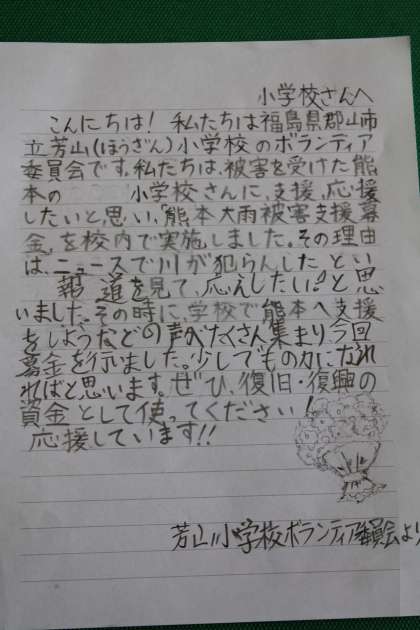 小学校さんへ
こんにちは！私たちは福島県郡山市
立芳山(ほうざん)小学校のボランティア
委員会です。私たちは、被害を受けた熊
本の 小学校さんに、支援、応援
したいと思い、熊本大雨被害支援募
金を校内で実施しました。その理由
は、ニュースで川が犯らんした とい
報道を見て、応えんしたい。と思
いました。その時に、学校で熊本へ支援
をしようなどの声がたくさん集まり、今回
募金を行いました。少しでも力になれ
ればと思います。ぜひ、復旧・復興の
資金として使ってください！
応援しています!!
芳山小学校ボランティア委員会より